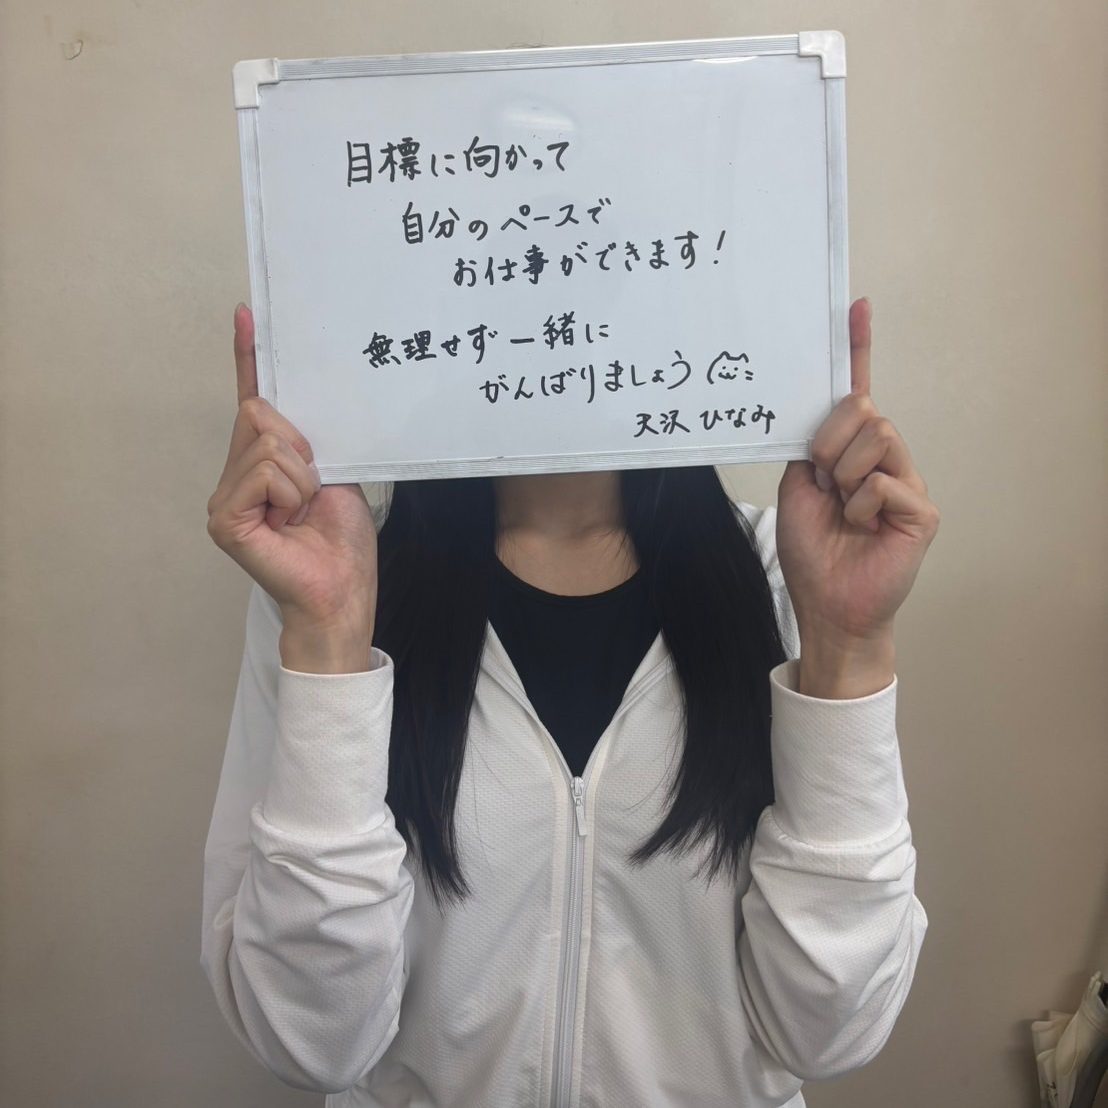 目標に向かって
自分のペースで
お仕事ができます！
無理せず一緒に
がんばりましょう
天沢 ひなみ